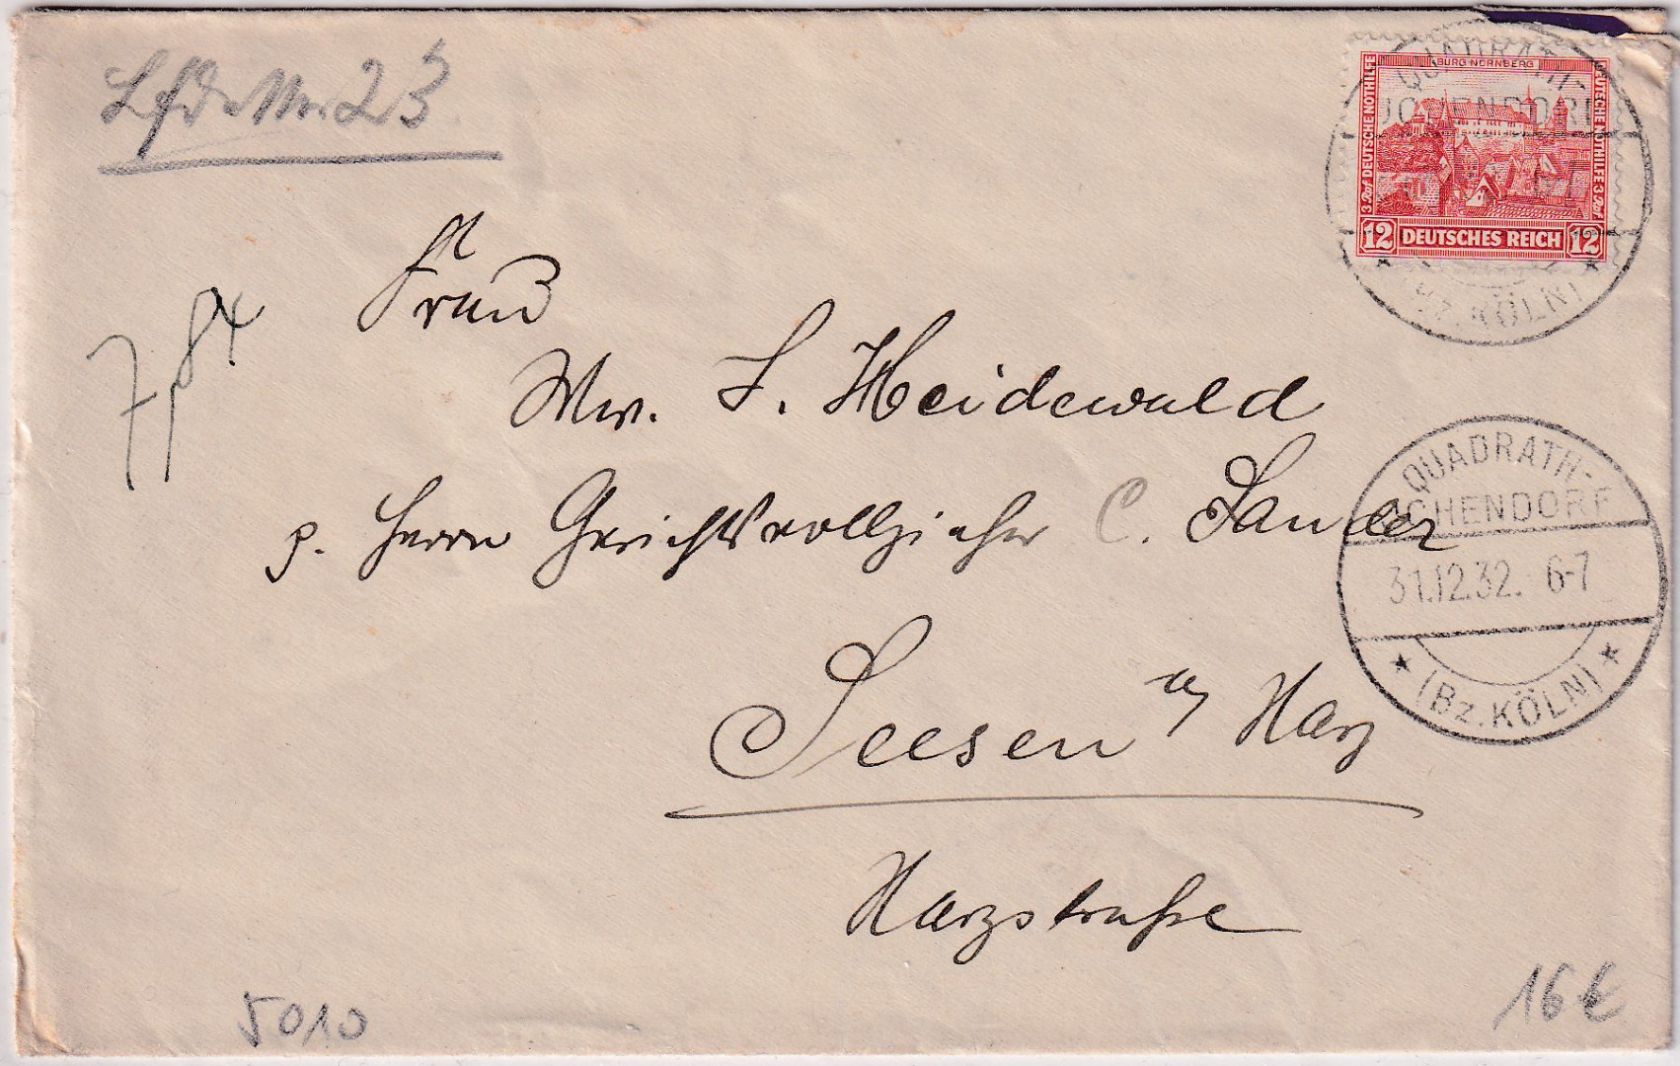 Lfd. Nr. 23
BURG NÜRNBERG
3 Rpf DEUTSCHE NOTHILFE
DEUTSCHE NOTHILFE 3 Rpf
12 DEUTSCHES REICH 12
QUADRATH-
ICHENDORF
(Bz. KÖLN)
Frau
Ww. L. Heidewald
p. Herrn Gerichtsvollzieher C. Sander
Seesen a/ Harz
Harzstraße
QUADRATH-
ICHENDORF
31.12.32. 6-7
(Bz. KÖLN)
5010
16 €